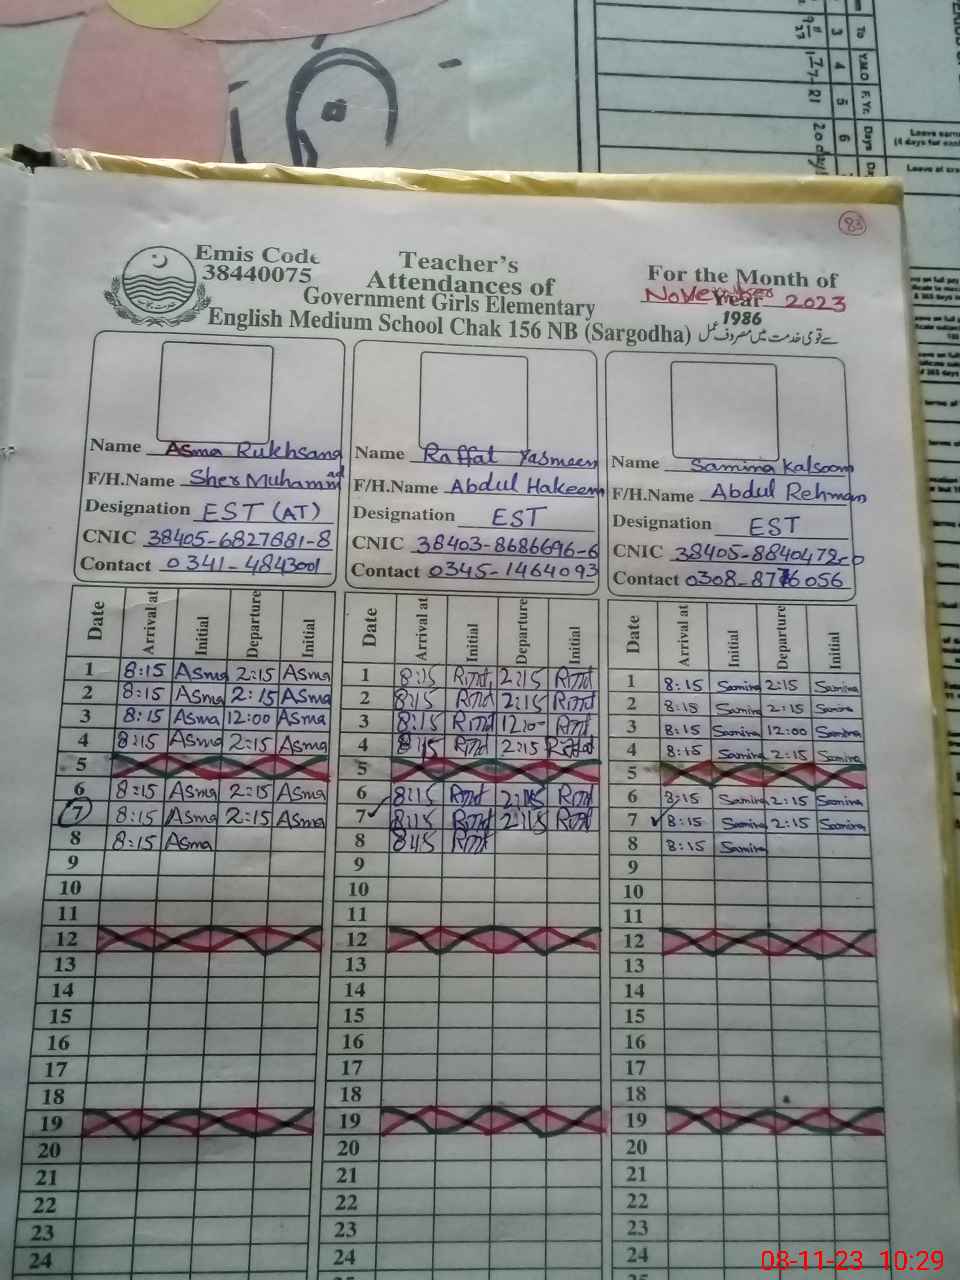 To 3
Y.M.O 4 1-7-21
F. Yr. 5
Days 6 20 days
Leave earn
(4 days for each
Leave at cre
83
Emis Code
38440075
Teacher's
Attendances of
Government Girls Elementary
English Medium School Chak 156 NB (Sargodha)
For the Month of
November Year 2023
1986
سے قومی خدمت میں مصروف عمل
Name Asma Rukhsana
F/H.Name Sher Muhammad
Designation EST (AT)
CNIC 38405-6827681-8
Contact 0341-4843001
Name Raffat Yasmeen
F/H.Name Abdul Hakeem
Designation EST
CNIC 38403-8686696-6
Contact 0345-1464093
Name Samina Kalsoom
F/H.Name Abdul Rehman
Designation EST
CNIC 38405-8840472-0
Contact 0308-8776056
Date Arrival at Initial Departure Initial
1 8:15 Asma 2:15 Asma
2 8:15 Asma 2:15 Asma
3 8:15 Asma 12:00 Asma
4 8:15 Asma 2:15 Asma
5
6 8:15 Asma 2:15 Asma
7 8:15 Asma 2:15 Asma
8 8:15 Asma
9
10
11
12
13
14
15
16
17
18
19
20
21
22
23
24
Date Arrival at Initial Departure Initial
1 8:15 2:15
2 8:15 2:15
3 8:15 12:0-
4 8:15 2:15
5
6 8:15 2:15
7 8:15 2:15
8 8:15
9
10
11
12
13
14
15
16
17
18
19
20
21
22
23
24
Date Arrival at Initial Departure Initial
1 8:15 Samina 2:15 Samina
2 8:15 Samina 2:15 Samina
3 8:15 Samina 12:00 Samina
4 8:15 Samina 2:15 Samina
5
6 8:15 Samina 2:15 Samina
7 8:15 Samina 2:15 Samina
8 8:15 Samina
9
10
11
12
13
14
15
16
17
18
19
20
21
22
23
24
08-11-23 10:29